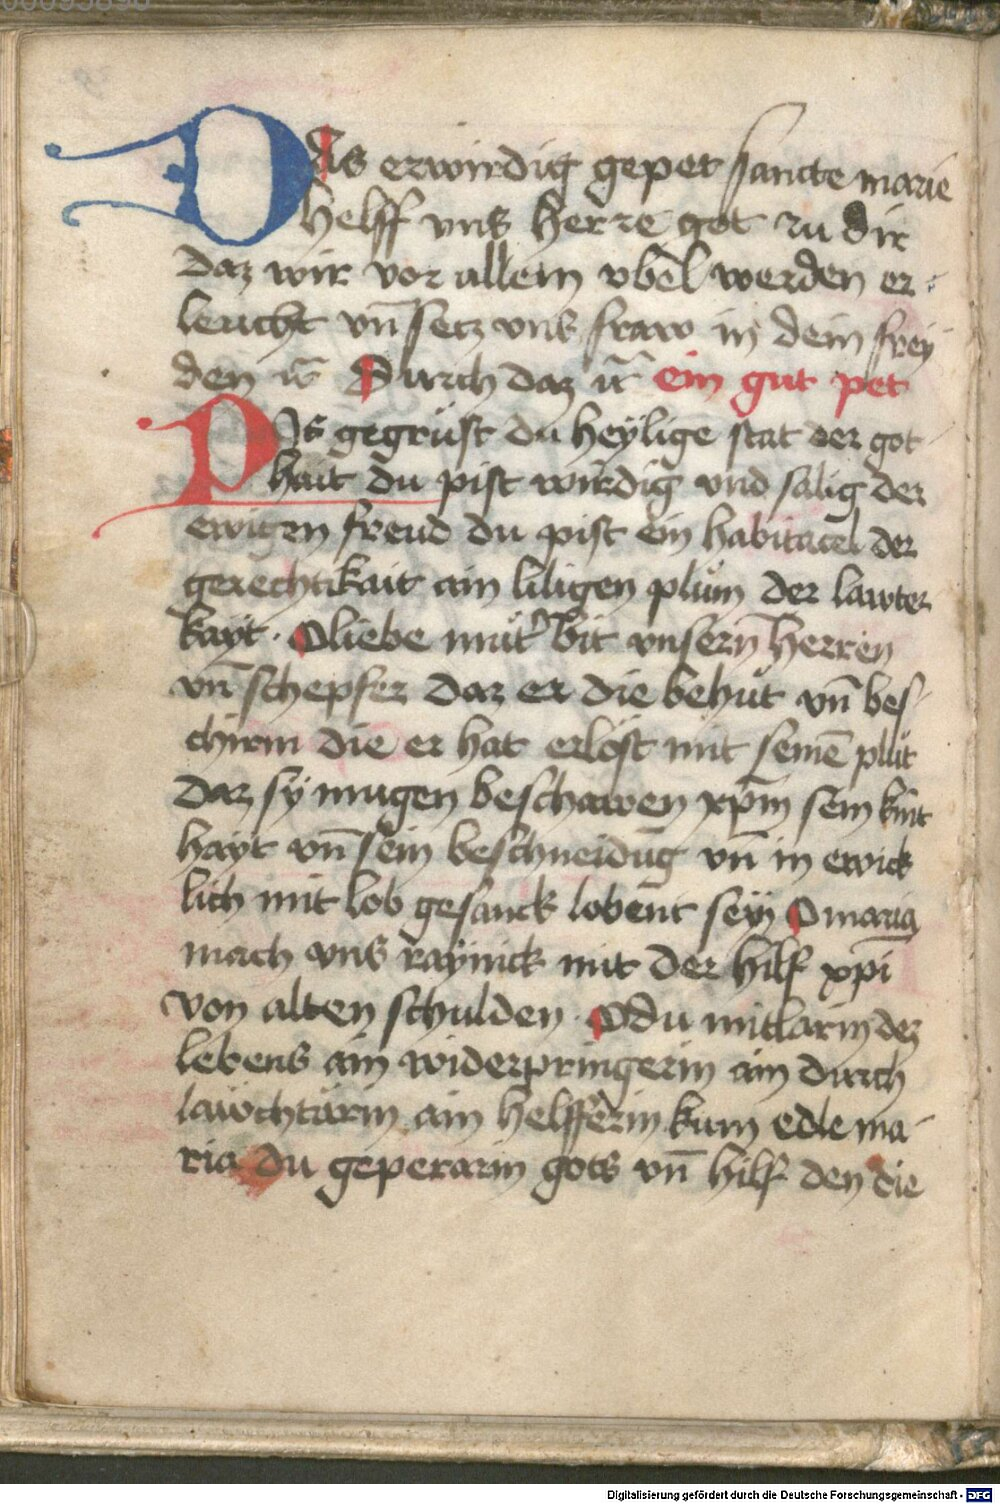 00095896
Das erwirdig gepet sancte marie
helff vns herre got zu dir
daz wir vor allem vbel werden er-
leucht vn̄ setz vns fraw in dein frey
den ꝛc̄ Durch daz ꝛc̄ ein gut pet
Pis gegrüst du heylige stat der got
hait du pist wirdig vnd salig der
ewigen freud du pist ein habitacel der
gerechtikait ain liligen plům der lawter
kayt. O liebe můt̄ bit vnsern̄ herren
vn̄ schepfer daz er die behůt vn̄ bes-
chirm die er hat erlöst mit seinē plůt
daz sy mugen beschawen xp̄m sein kint
hayt vn̄ sein beschneidūg vn̄ in ewick
lich mit lob gesanck lobent seyn O maria
mach vns raynick mit der hilf xp̄i
von alten schulden. O du mitlarin dez
lebens ain widerpringerin ain durch
läwchtärin ain helfferin kum edle ma-
ria du geperarin gots vn̄ hilf den die
Digitalisierung gefördert durch die Deutsche Forschungsgemeinschaft - DFG